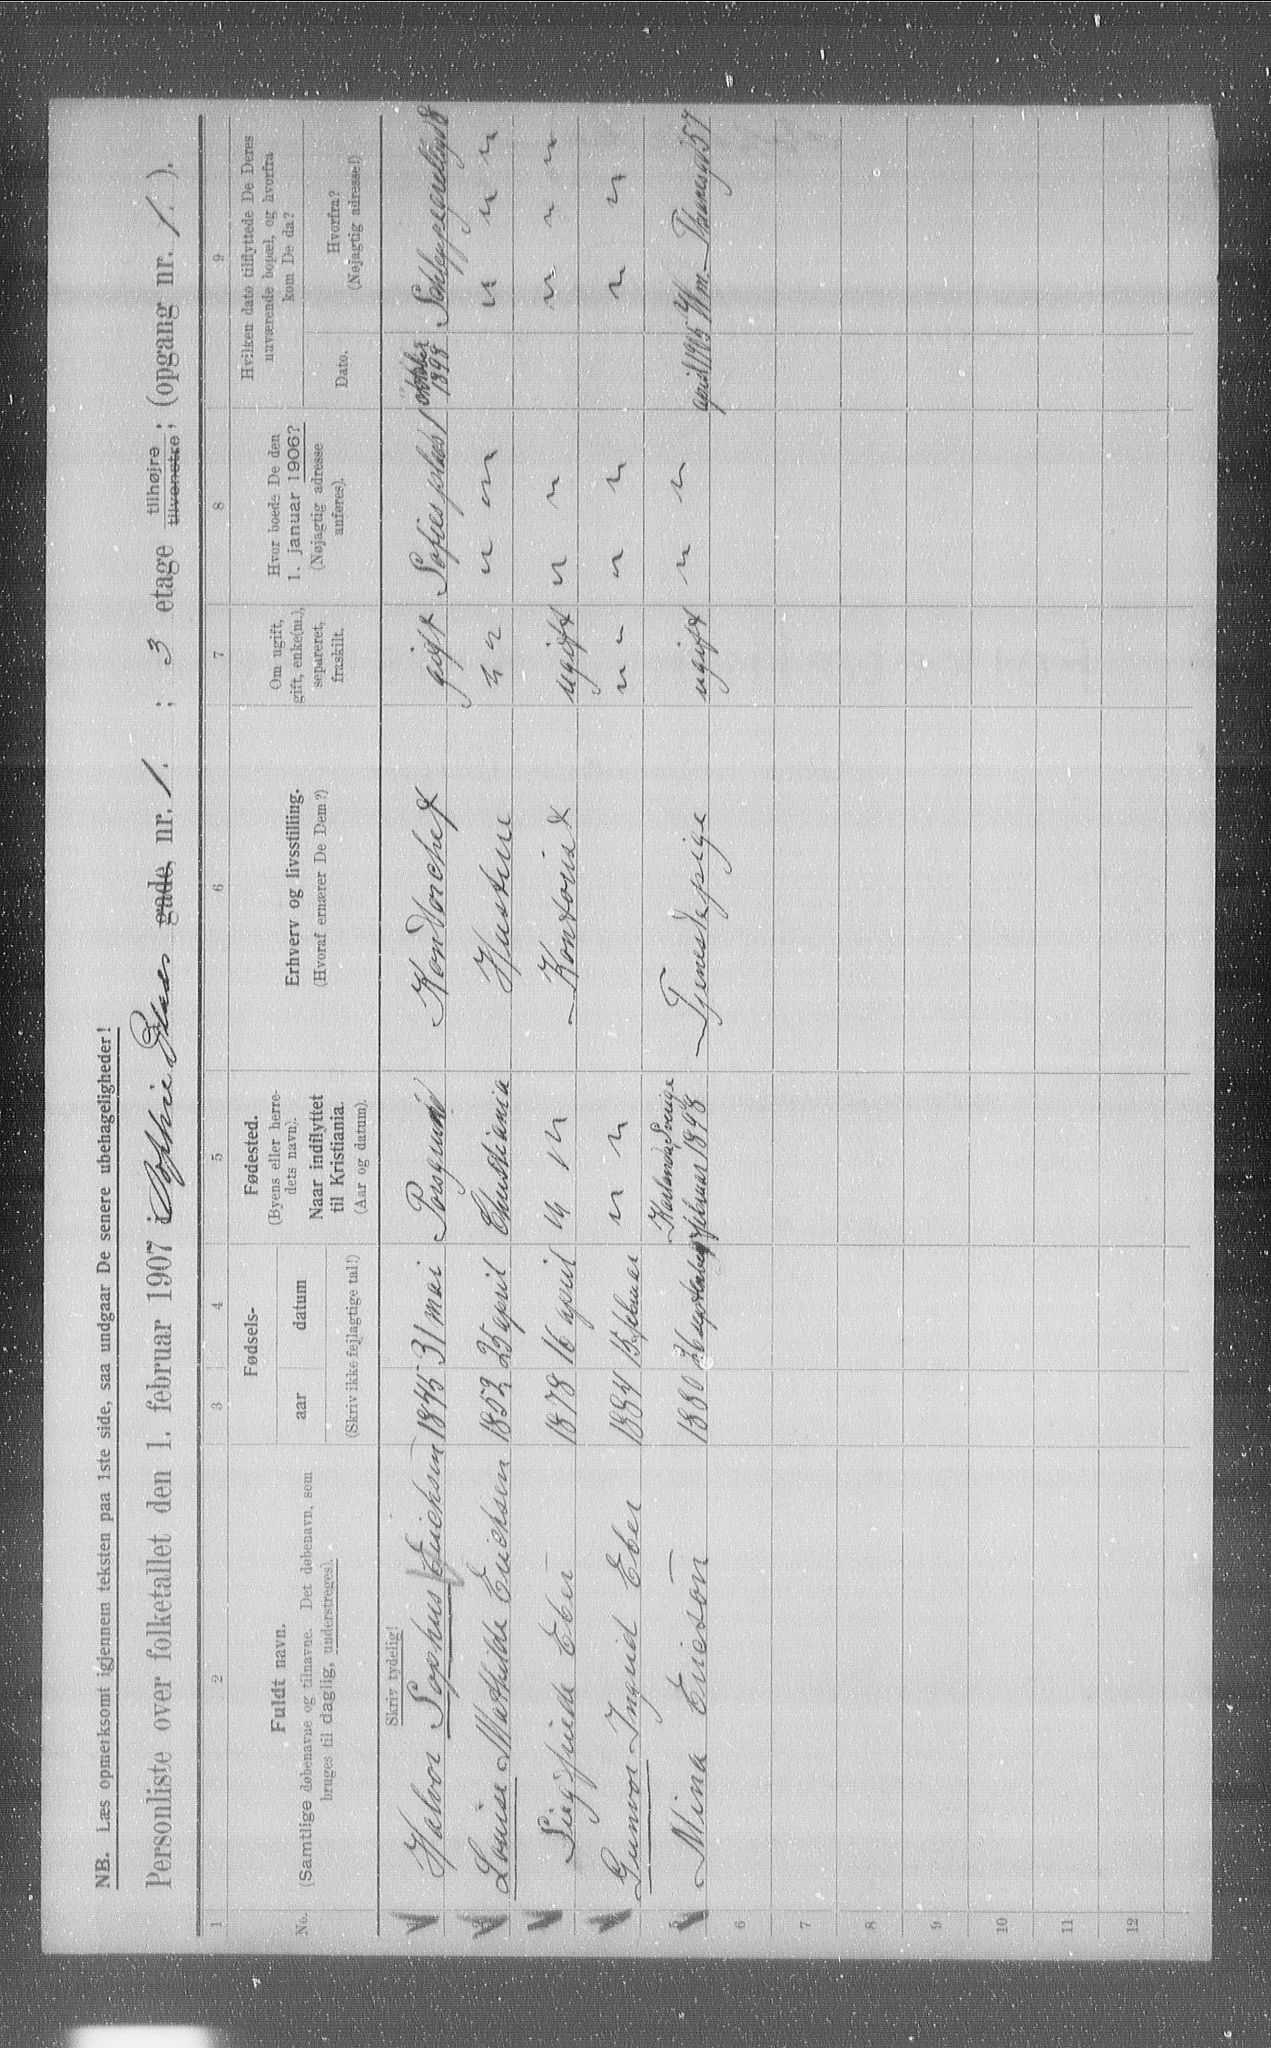 NB. Læs opmerksomt igjennem teksten paa 1ste side, saa undgaar De senere ubehageligheder!
Personliste over folketallet den 1. februar 1907 i Sophie Plads gade, nr. 1. ; 3 etage tilhøjre tilvenstre; (opgang nr. 1. ).
1 2 3 4 5 6 7 8 9
No.
Fuldt navn.
(Samtlige døbenavne og tilnavne. Det døbenavn, som
bruges til daglig, understreges).
Fødsels-
aar datum
(Skriv ikke fejlagtige tal!)
Fødested.
(Byens eller herre-
dets navn).
Naar indflyttet
til Kristiania.
(Aar og datum).
Erhverv og livsstilling.
(Hvoraf ernærer De Dem?)
Om ugift,
gift, enke(m.),
separeret,
fraskilt.
Hvor boede De den
1. januar 1906?
(Nøjagtig adresse
anføres).
Hvilken dato tilflyttede De Deres
nuværende bopæl, og hvorfra
kom De da?
Dato.
Hvorfra?
(Nøjagtig adresse!)
Skriv tydelig!
Halvor Sophus Erichsen 1845 31 mai Porsgrund Kontorchef gift Sofies plads 1 oktober 1898
Louise Mathilde Erichsen 1852 25 april Christiania Hustru " " " " " " " "
Sigfried Eber 1878 16 april " " Kontorist ugift " " " " "
Gunvor Ingrid Eber 1884 15 februar " " " " " " " "
5 Mina Ericson 1880 26 september Karlanda Sverige februar 1898 Tjenestepige ugift " " april 1905
6
7
8
9
10
11
12